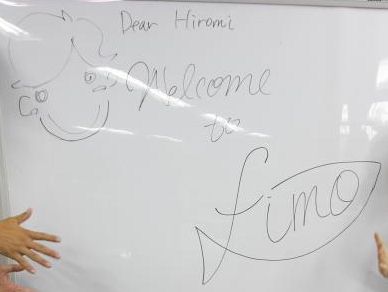 Dear Hiromi
Welcome
to
fimo